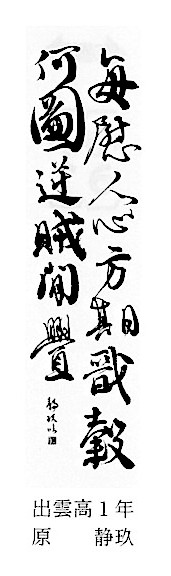 每慰人心方期戩穀
何圖逆賊間釁
静玖臨
出雲高1年
原 静玖